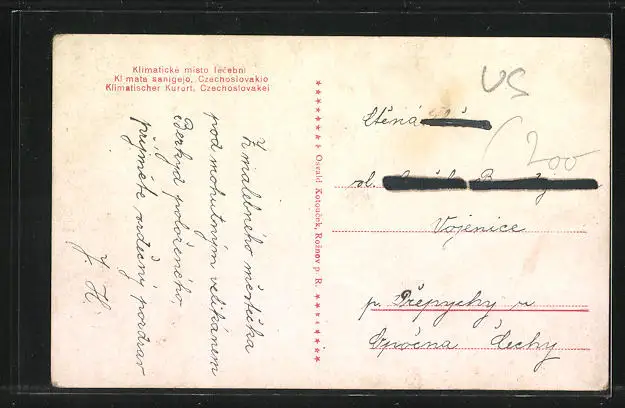 Klimatické místo léčební
Klimata sanigejo, Czechoslovakio
Klimatischer Kurort, Czechoslovakei
Z malebného městečka
pod mohutným velikánem
Berkyd položeného
přijměte srdečný pozdrav
J. H.
Osvald Kotouček, Rožnov p. R.
VS
200
Ctěná
sl.
Vojenice
p. Přepychy u
Opočna Čechy